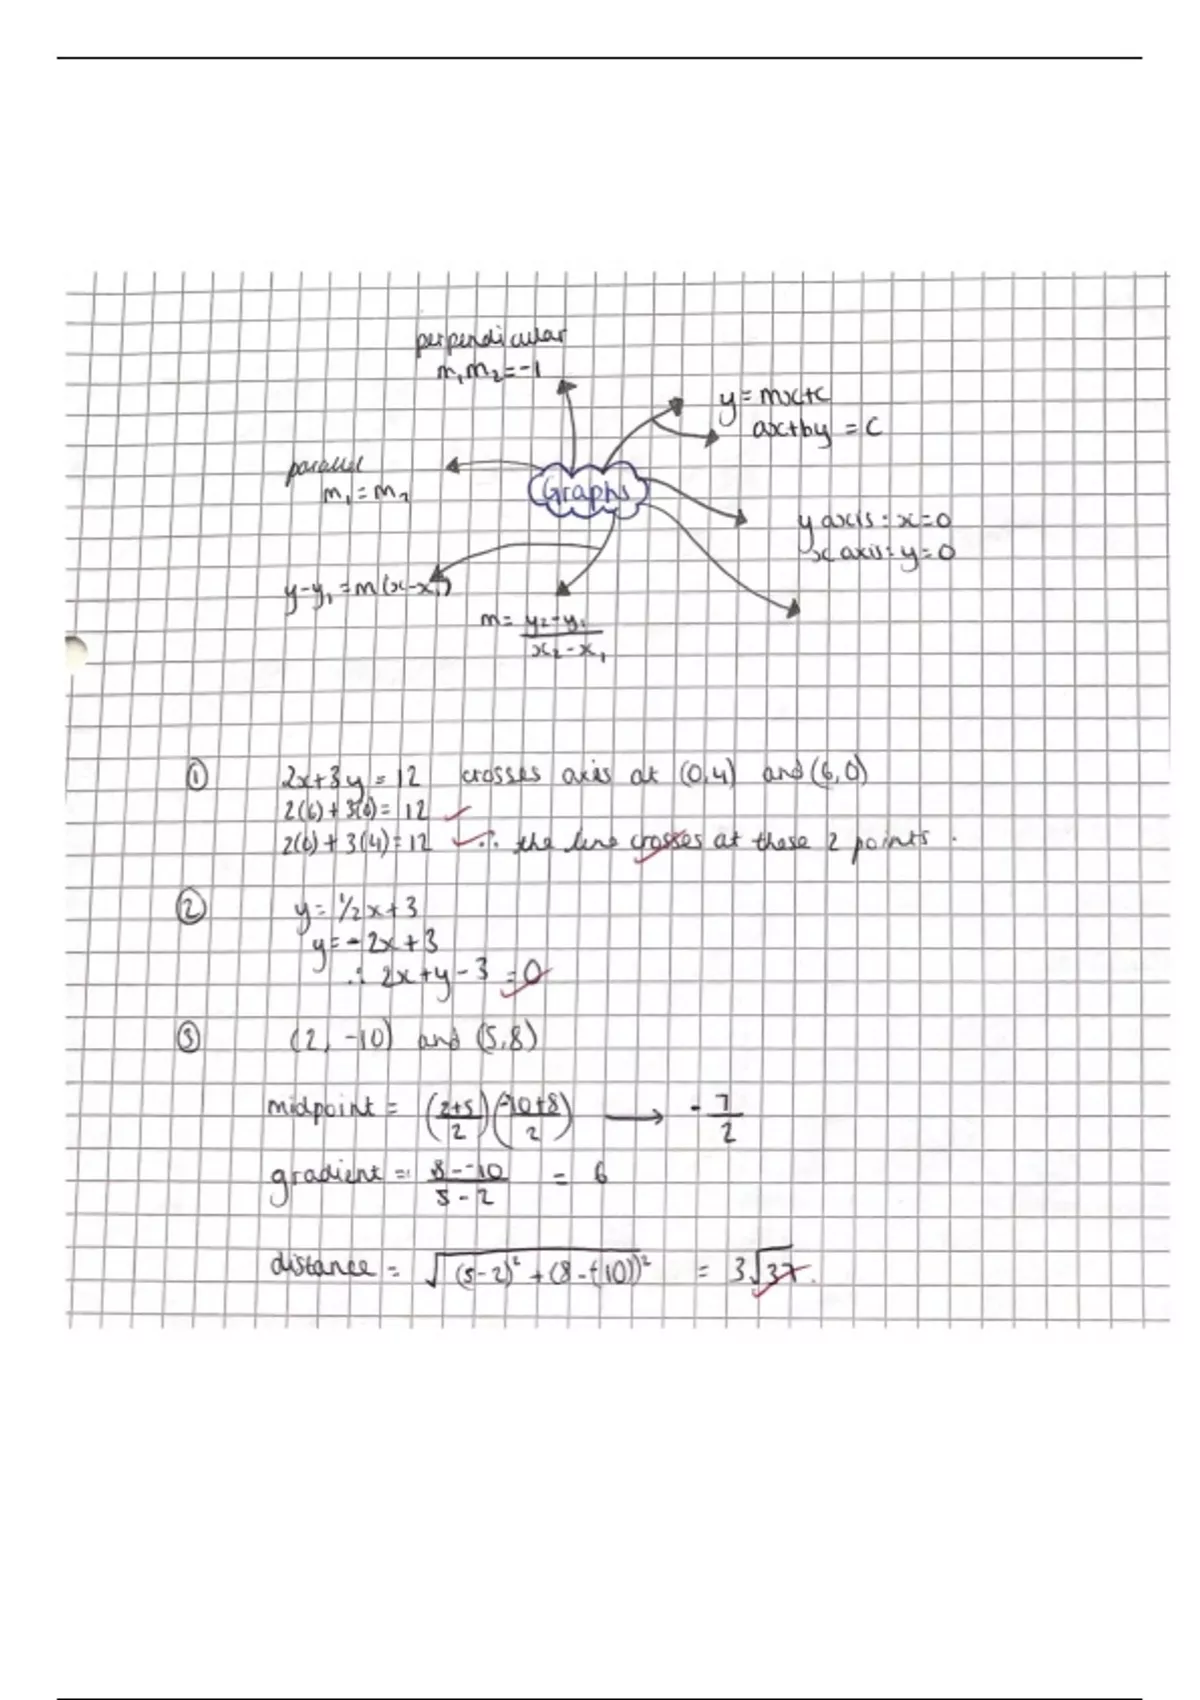 perpendicular
m₁m₂=-1
y=mx+c
ax+by=c
parallel
m₁=m₂
Graphs
y axis: x=0
x axis: y=0
y-y₁=m(x-x₁)
m= y₂-y₁
x₂-x₁
① 2x+3y=12 crosses axis at (0,4) and (6,0)
2(6)+3(0)=12
2(0)+3(4)=12 ∴ the line crosses at these 2 points.
② y=½x+3
y=-2x+3
∴ 2x+y-3=0
③ (2,-10) and (5,8)
midpoint = (2+5/2)(-10+8/2) → -7/2
gradient = 8--10/5-2 = 6
distance = √(5-2)²+(8-(-10))² = 3√37.